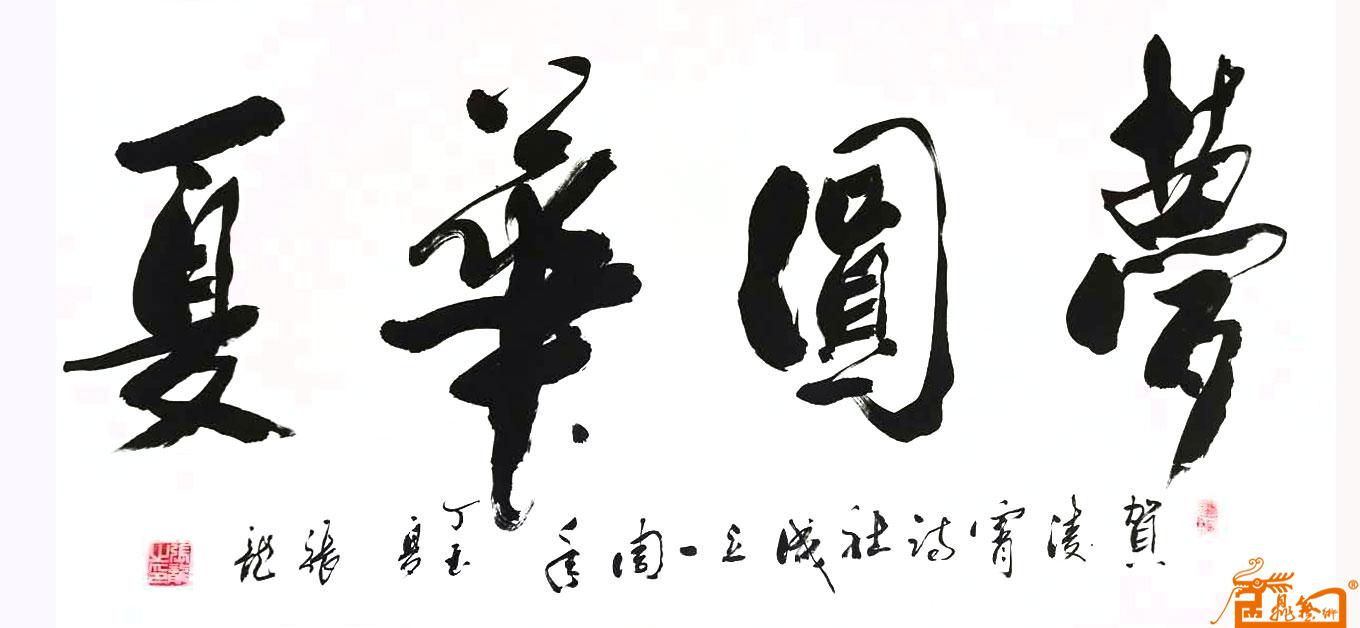 夢圓華夏
賀凌霄詩社成立一周年 丁酉夏 張龍
張龍之印